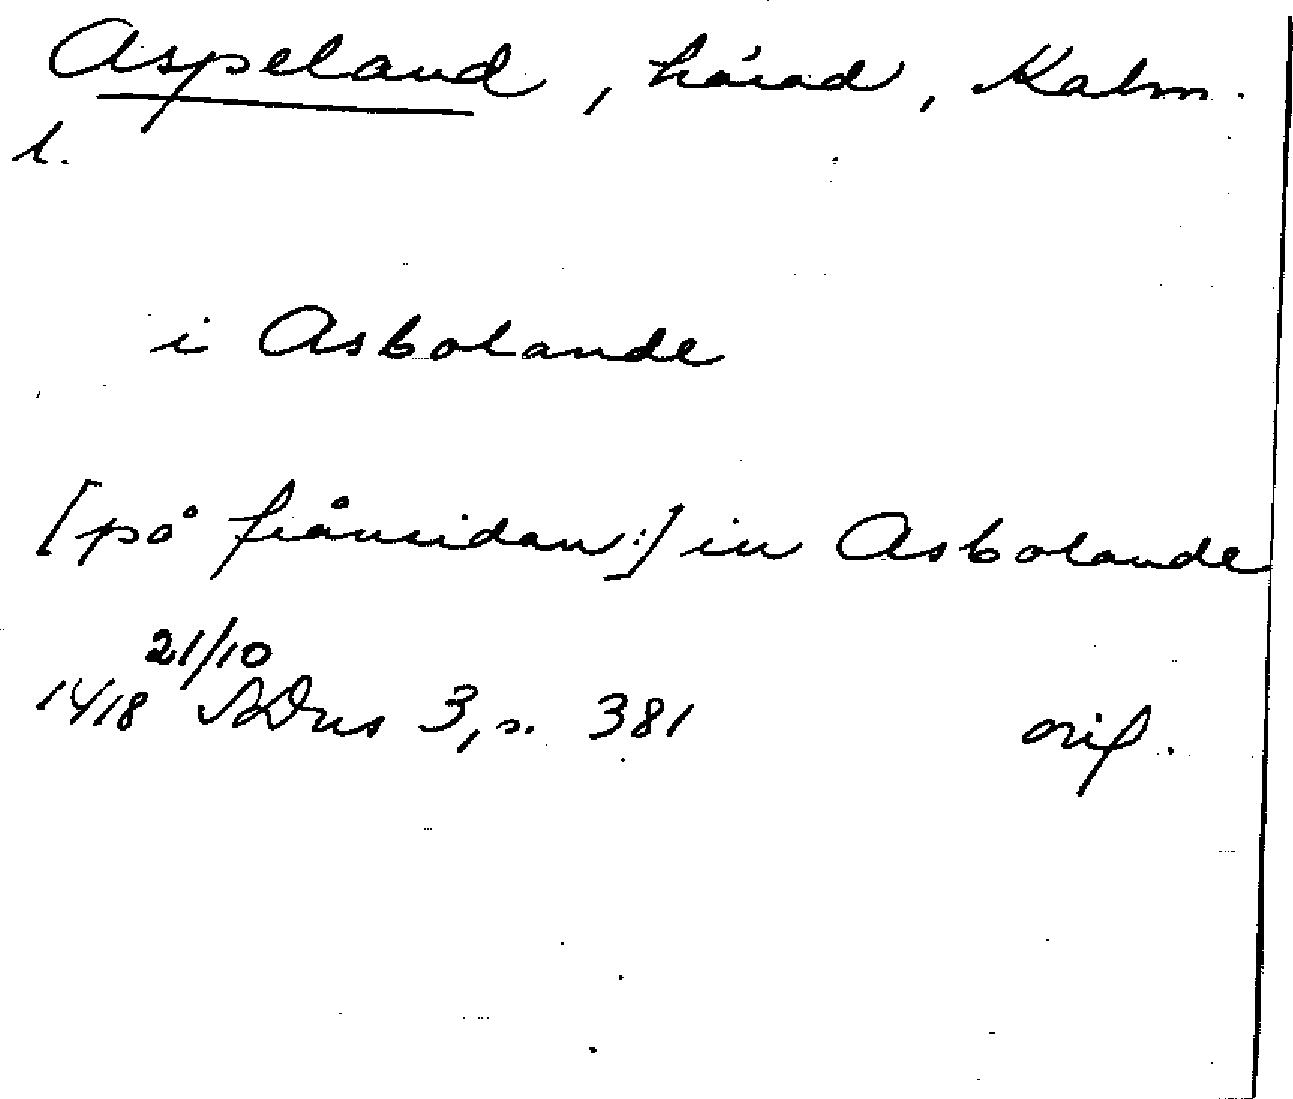 Aspeland, härad, Kalm.
l.
i Asbolande
[på frånsidan:] in Asbolande
21/10
1418 SDns 3, s. 381 orig.